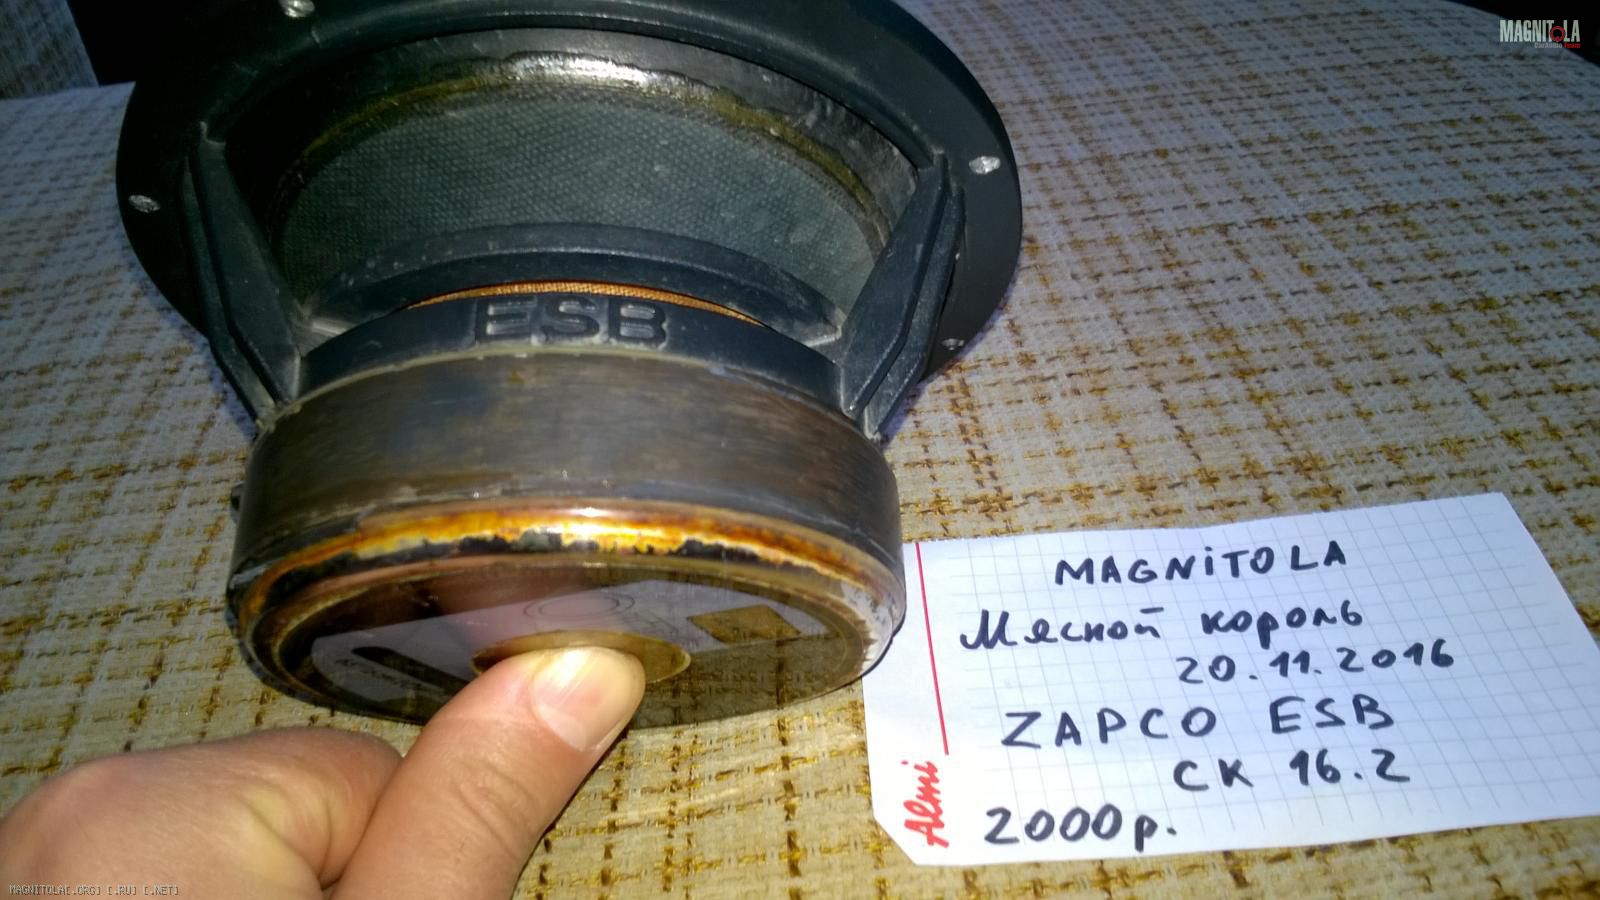 MAGNITOLA
CarAudio Team
ESB
MAGNiTOLA
Мясной король
20.11.2016
ZAPCO ESB
CK 16.2
2000р.
Almi
MAGNITOLA[.ORG] [.RU] [.NET]